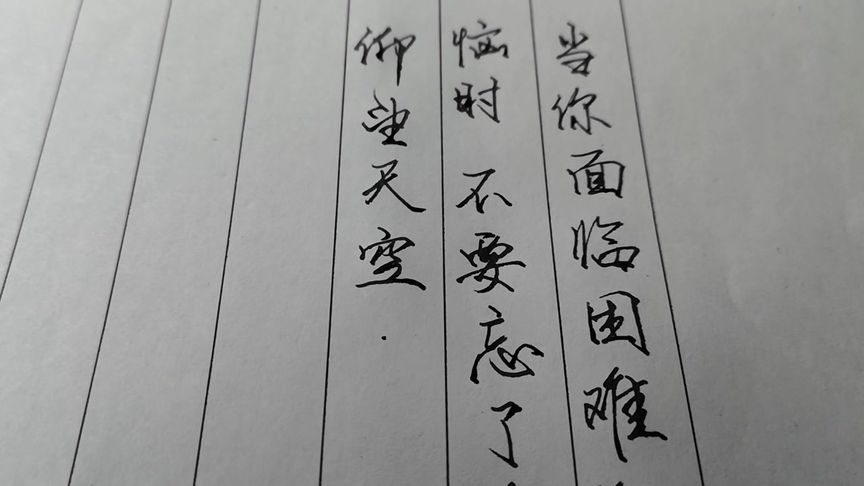 当你面临困难
恼时 不要忘了
仰望天空.